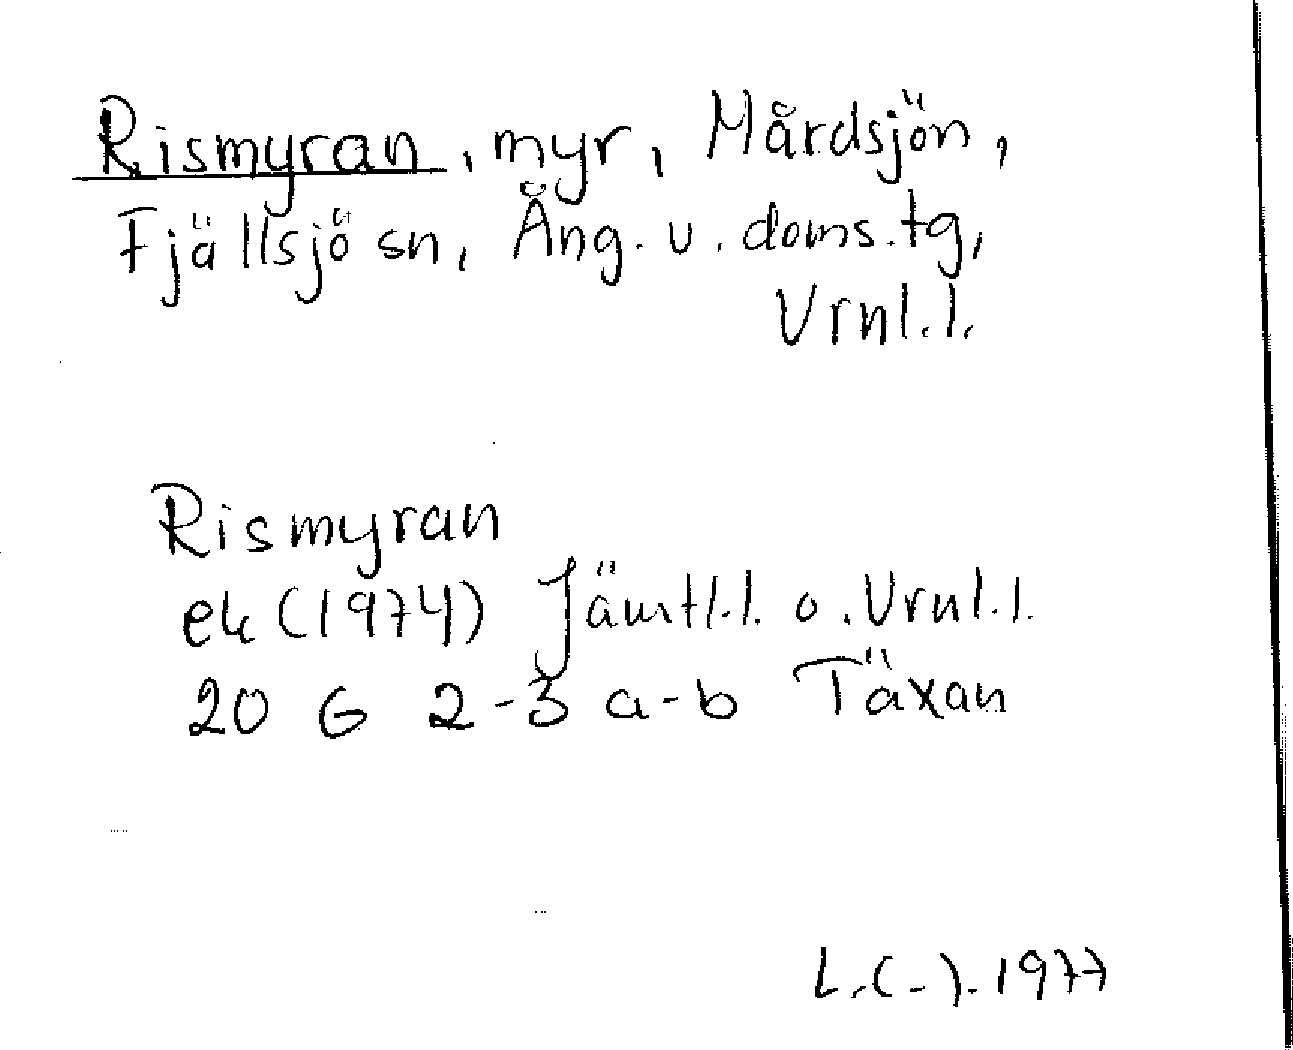 Rismyran, myr, Mårdsjön,
Fjällsjö sn, Ång. v. doms.tg,
Vrnl.l.
Rismyran
ek (1974) Jämtl.l. o. Vrnl.l.
20 G 2-3 a-b Täxan
L.(-). 1977